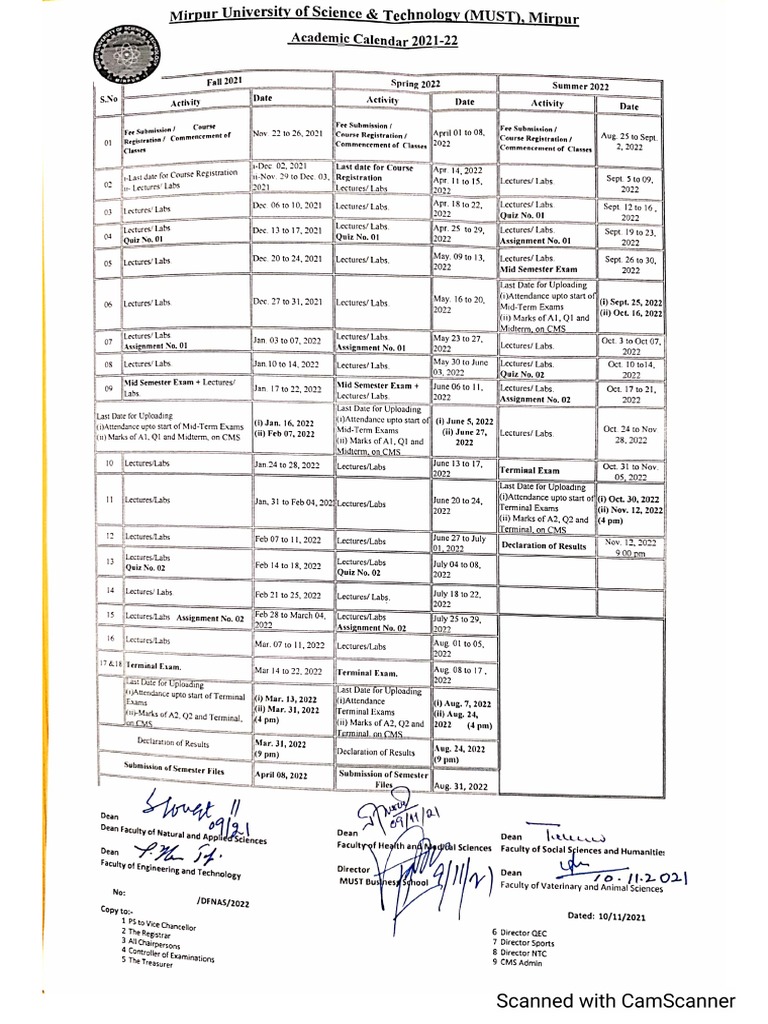 Mirpur University of Science & Technology (MUST), Mirpur
Academic Calendar 2021-22
S.No Fall 2021 Spring 2022 Summer 2022
Activity Date Activity Date Activity Date
01 Fee Submission / Course Registration / Commencement of Classes Nov. 22 to 26, 2021 Fee Submission / Course Registration / Commencement of Classes April 01 to 08, 2022 Fee Submission / Course Registration / Commencement of Classes Aug. 25 to Sept. 2, 2022
02 i-Last date for Course Registration ii- Lectures/ Labs i-Dec 02, 2021 ii-Nov. 29 to Dec. 03, 2021 Last date for Course Registration Lectures/ Labs Apr. 14, 2022 Apr. 11 to 15, 2022 Lectures/ Labs. Sept. 5 to 09, 2022
03 Lectures/ Labs Dec. 06 to 10, 2021 Lectures/ Labs. Apr. 18 to 22, 2022 Lectures/ Labs. Quiz No. 01 Sept. 12 to 16, 2022
04 Lectures/ Labs Quiz No. 01 Dec. 13 to 17, 2021 Lectures/ Labs. Quiz No. 01 Apr. 25 to 29, 2022 Lectures/ Labs. Assignment No. 01 Sept. 19 to 23, 2022
05 Lectures/ Labs. Dec. 20 to 24, 2021 Lectures/ Labs. May. 09 to 13, 2022 Lectures/ Labs. Mid Semester Exam Sept. 26 to 30, 2022
06 Lectures/ Labs. Dec. 27 to 31, 2021 Lectures/ Labs. May. 16 to 20, 2022 Last Date for Uploading (i)Attendance upto start of Mid-Term Exams (ii) Marks of A1, Q1 and Midterm, on CMS (i) Sept. 25, 2022 (ii) Oct. 16, 2022
07 Lectures/ Labs Assignment No. 01 Jan. 03 to 07, 2022 Lectures/ Labs. Assignment No. 01 May 23 to 27, 2022 Lectures/ Labs. Oct. 3 to Oct 07, 2022
08 Lectures/ Labs Jan.10 to 14, 2022 Lectures/ Labs. May 30 to June 03, 2022 Lectures/ Labs. Quiz No. 02 Oct. 10 to14, 2022
09 Mid Semester Exam + Lectures/ Labs. Jan. 17 to 22, 2022 Mid Semester Exam + Lectures/ Labs. June 06 to 11, 2022 Lectures/ Labs. Assignment No. 02 Oct. 17 to 21, 2022
Last Date for Uploading (i)Attendance upto start of Mid-Term Exams (ii) Marks of A1, Q1 and Midterm, on CMS (i) Jan. 16, 2022 (ii) Feb 07, 2022 Last Date for Uploading (i)Attendance upto start of Mid-Term Exams (ii) Marks of A1, Q1 and Midterm, on CMS (i) June 5, 2022 (ii) June 27, 2022 Lectures/ Labs. Oct. 24 to Nov. 28, 2022
10 Lectures/Labs Jan.24 to 28, 2022 Lectures/Labs June 13 to 17, 2022 Terminal Exam Oct. 31 to Nov. 05, 2022
11 Lectures/Labs Jan, 31 to Feb 04, 202 Lectures/Labs June 20 to 24, 2022 Last Date for Uploading (i)Attendance upto start of Terminal Exams (ii) Marks of A2, Q2 and Terminal, on CMS (i) Oct. 30, 2022 (ii) Nov. 12, 2022 (4 pm)
12 Lectures/Labs Feb 07 to 11, 2022 Lectures/Labs June 27 to July 01, 2022 Declaration of Results Nov. 12, 2022 9.00 pm
13 Lectures/Labs Quiz No. 02 Feb 14 to 18, 2022 Lectures/Labs Quiz No. 02 July 04 to 08, 2022
14 Lectures/ Labs Feb 21 to 25, 2022 Lectures/ Labs. July 18 to 22, 2022
15 Lectures/Labs Assignment No. 02 Feb 28 to March 04, 2022 Lectures/Labs Assignment No. 02 July 25 to 29, 2022
16 Lectures/Labs Mar. 07 to 11, 2022 Lectures/Labs Aug. 01 to 05, 2022
17 &18 Terminal Exam. Mar 14 to 22, 2022 Terminal Exam. Aug. 08 to 17, 2022
Last Date for Uploading (i)Attendance upto start of Terminal Exams (ii)-Marks of A2, Q2 and Terminal, on CMS (i) Mar. 13, 2022 (ii) Mar. 31, 2022 (4 pm) Last Date for Uploading (i)Attendance Terminal Exams (ii) Marks of A2, Q2 and Terminal, on CMS (i) Aug. 7, 2022 (ii) Aug. 24, 2022 (4 pm)
Declaration of Results Mar. 31, 2022 (9 pm) Declaration of Results Aug. 24, 2022 (9 pm)
Submission of Semester Files April 08, 2022 Submission of Semester Files Aug. 31, 2022
Dean
Dean Faculty of Natural and Applied Sciences
Dean
Faculty of Engineering and Technology
09/11/21
Dean
Faculty of Health and Medical Sciences
Director
MUST Business School
9/11/21
Dean
Faculty of Social Sciences and Humanities
Dean
10.11.2021
Faculty of Veterinary and Animal Sciences
No: /DFNAS/2022
Dated: 10/11/2021
Copy to:-
1 PS to Vice Chancellor
2 The Registrar
3 All Chairpersons
4 Controller of Examinations
5 The Treasurer
6 Director QEC
7 Director Sports
8 Director NTC
9 CMS Admin
Scanned with CamScanner